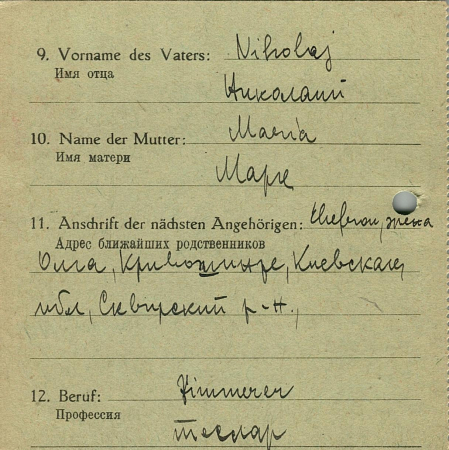 9. Vorname des Vaters: Nikolaj
Имя отца
Николаий
10. Name der Mutter: Maria
Имя матери
Марие
11. Anschrift der nächsten Angehörigen: Ehefrau, жена
Адрес ближайших родственников
Олга, Кривошиинце, Киевская
обл, Сквирский р-н,
12. Beruf: Zimmerer
Профессия
теслар